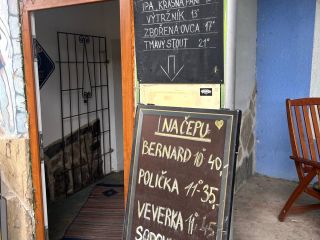 IPA KRÁSNÁ PANÍ
VÝTRŽNÍK 13°
ZBOŘENÁ OVCA 17°
TMAVÝ STOUT 21°
NA ČEPU
BERNARD 10° 40,-
POLIČKA 11° 35,-
VEVERKA 11° 45